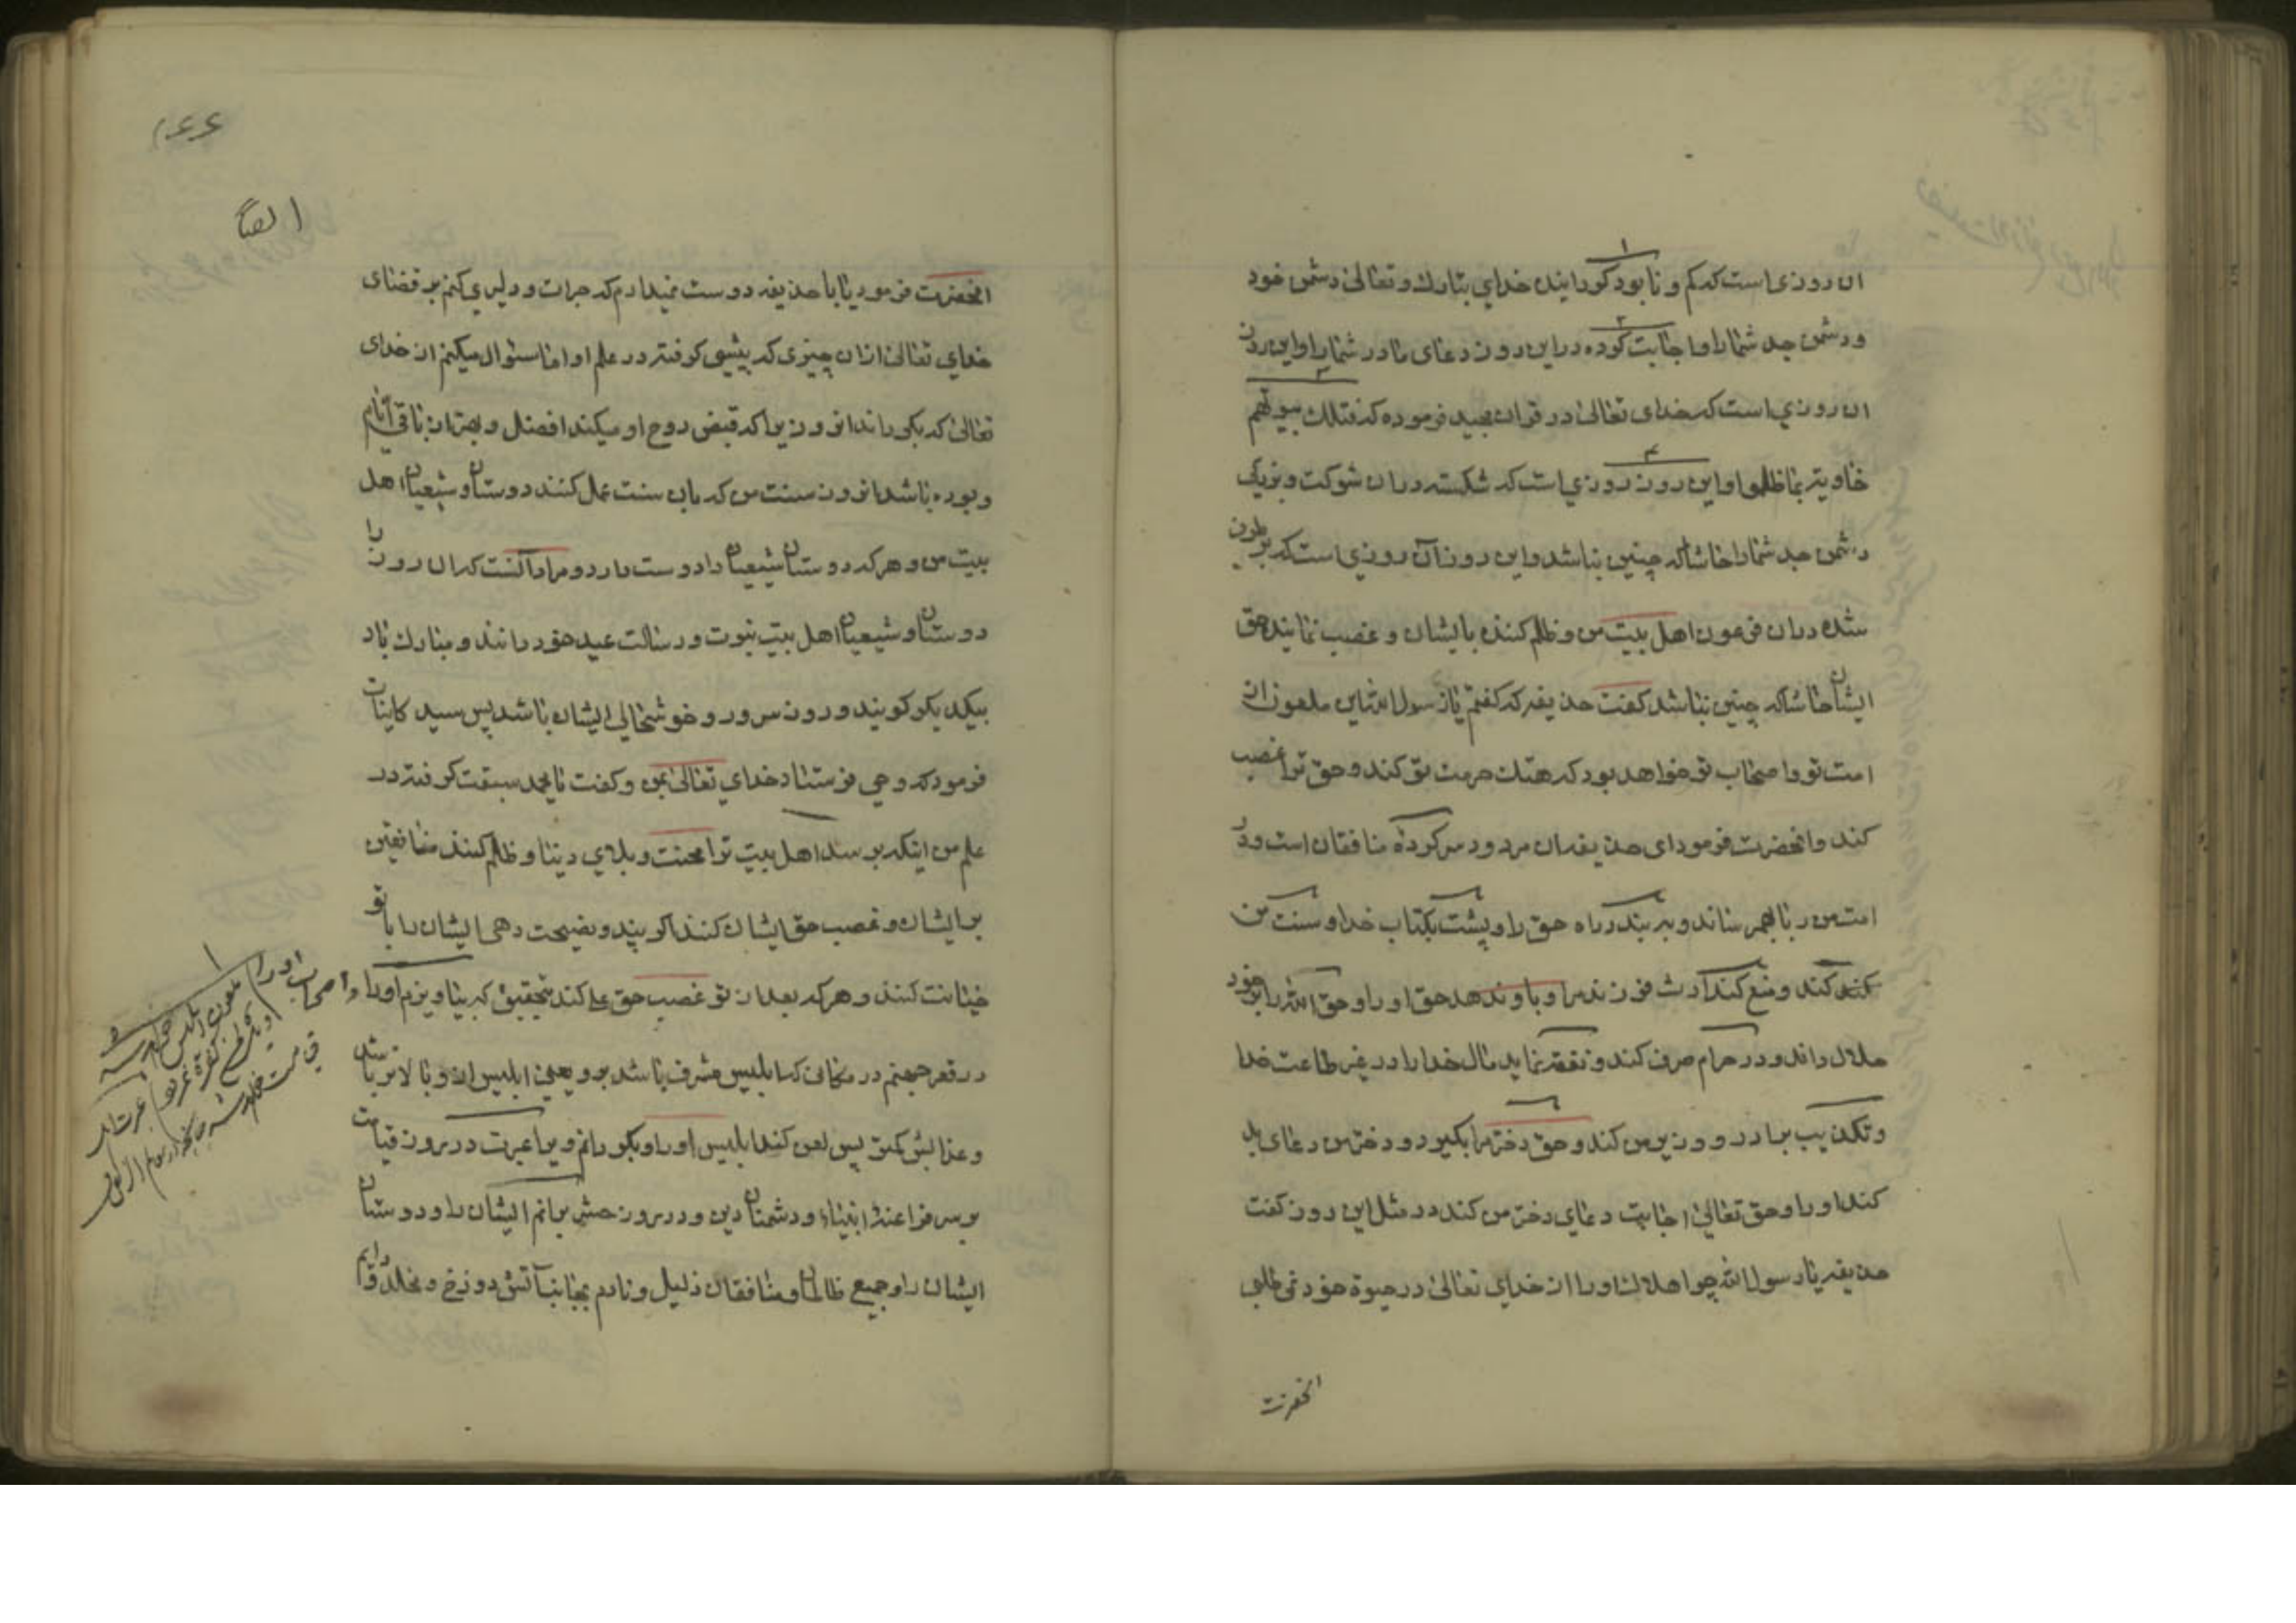 ان روزی است که کم و نابود کردانیده خدای تبارک و تعالی دشمن خود
و دشمن جد شما را و اجابت کرده در این روز دعای مادر شما را و این روز
ان روزی است که خدای تعالی در قران مجید فرموده که فتلک بیوتهم
خاویة بما ظلموا و این روز روزی است که شکسته در ان شوکت و بزرکی
دشمن جد شما را حاشا که چنین نباشد و این روز آن روزی است که برطرف
شده در ان فرعون اهل بیت من و ظلم کننده بایشان و غصب نمایند حق
ایشان حاشا که چنین نباشد کفت حذیفه که کفتم یا رسول الله این ملعون از
امت تو و اصحاب تو خواهد بود که هتک حرمت تو کند و حق ترا غصب
کند و انحضرت فرمود ای حذیفه ان مردود سرکرده منافقان است و در
امت من ربا بهم رساند و به بندد راه حق را و پشت بکتاب خدا و سنت من
کند و منع کند ارث فرزند مرا و باو ندهد حق او را و حق الله را بر خود
حلال داند و در حرام صرف کند و نفقه نماید مال خدا را در غیر طاعت خدا
و تکذیب برادر و وزیر من کند و حق دختر مرا بکیرد و دختر من دعای بد
کند او را و حق تعالی اجابت دعای دختر من کند در مثل این روز کفت
حذیفه یا رسول الله چرا هلاک او را از خدای تعالی در حیوة خود نمی طلبی
انحضرت
۱۶۶
ایضا
انحضرت فرمود یا با حذیفه دوست نمیدارم که جرات و دلیری کنم بر قضای
خدای تعالی ازان چیزی که پیشی کرفته در علم او اما سئوال میکنم از خدای
تعالی که بکرداند انروزیرا که قبض روح او میکند افضل و بهتر از باقی ایام
و بوده باشد انروز سنت من که بان سنت عمل کنند دوستان و شیعیان اهل
بیت من و هر که دوستان شیعیان را دوست دارد و مراد آنست که ان روز را
دوستان و شیعیان اهل بیت نبوت و رسالت عید خود دانند و مبارک باد
بیکدیکر کویند و روز سرور و خوشحالی ایشان باشد پس سید کاینات
فرمود که وحی فرستاد خدای تعالی بمن و کفت یا محمد سبقت کرفته در
علم من اینکه برسد اهل بیت ترا محنت و بلای دنیا و ظلم کنند منافقین
بر ایشان و غصب حق ایشان کنند و نصیحت دهی ایشان را با تو
خیانت کنند و هر که بعد از تو غصب حق علی کند بتحقیق که بیاویزم او را و اصحاب او را
در قعر جهنم در مکانی که ابلیس مشرف باشد برو یعنی ابلیس ازو بالاتر باشد
و عذابش کمتر پس لعن کند ابلیس او را و بکردانم ویرا عبرت در روز قیامت
بر سر فراعنه انبیاء و دشمنان دین و در روز حشر برانم ایشان را و دوستان
ایشان را و جمیع ظالمان و منافقان ذلیل و نادم بجانب آتش دوزخ و مخلد و دایم